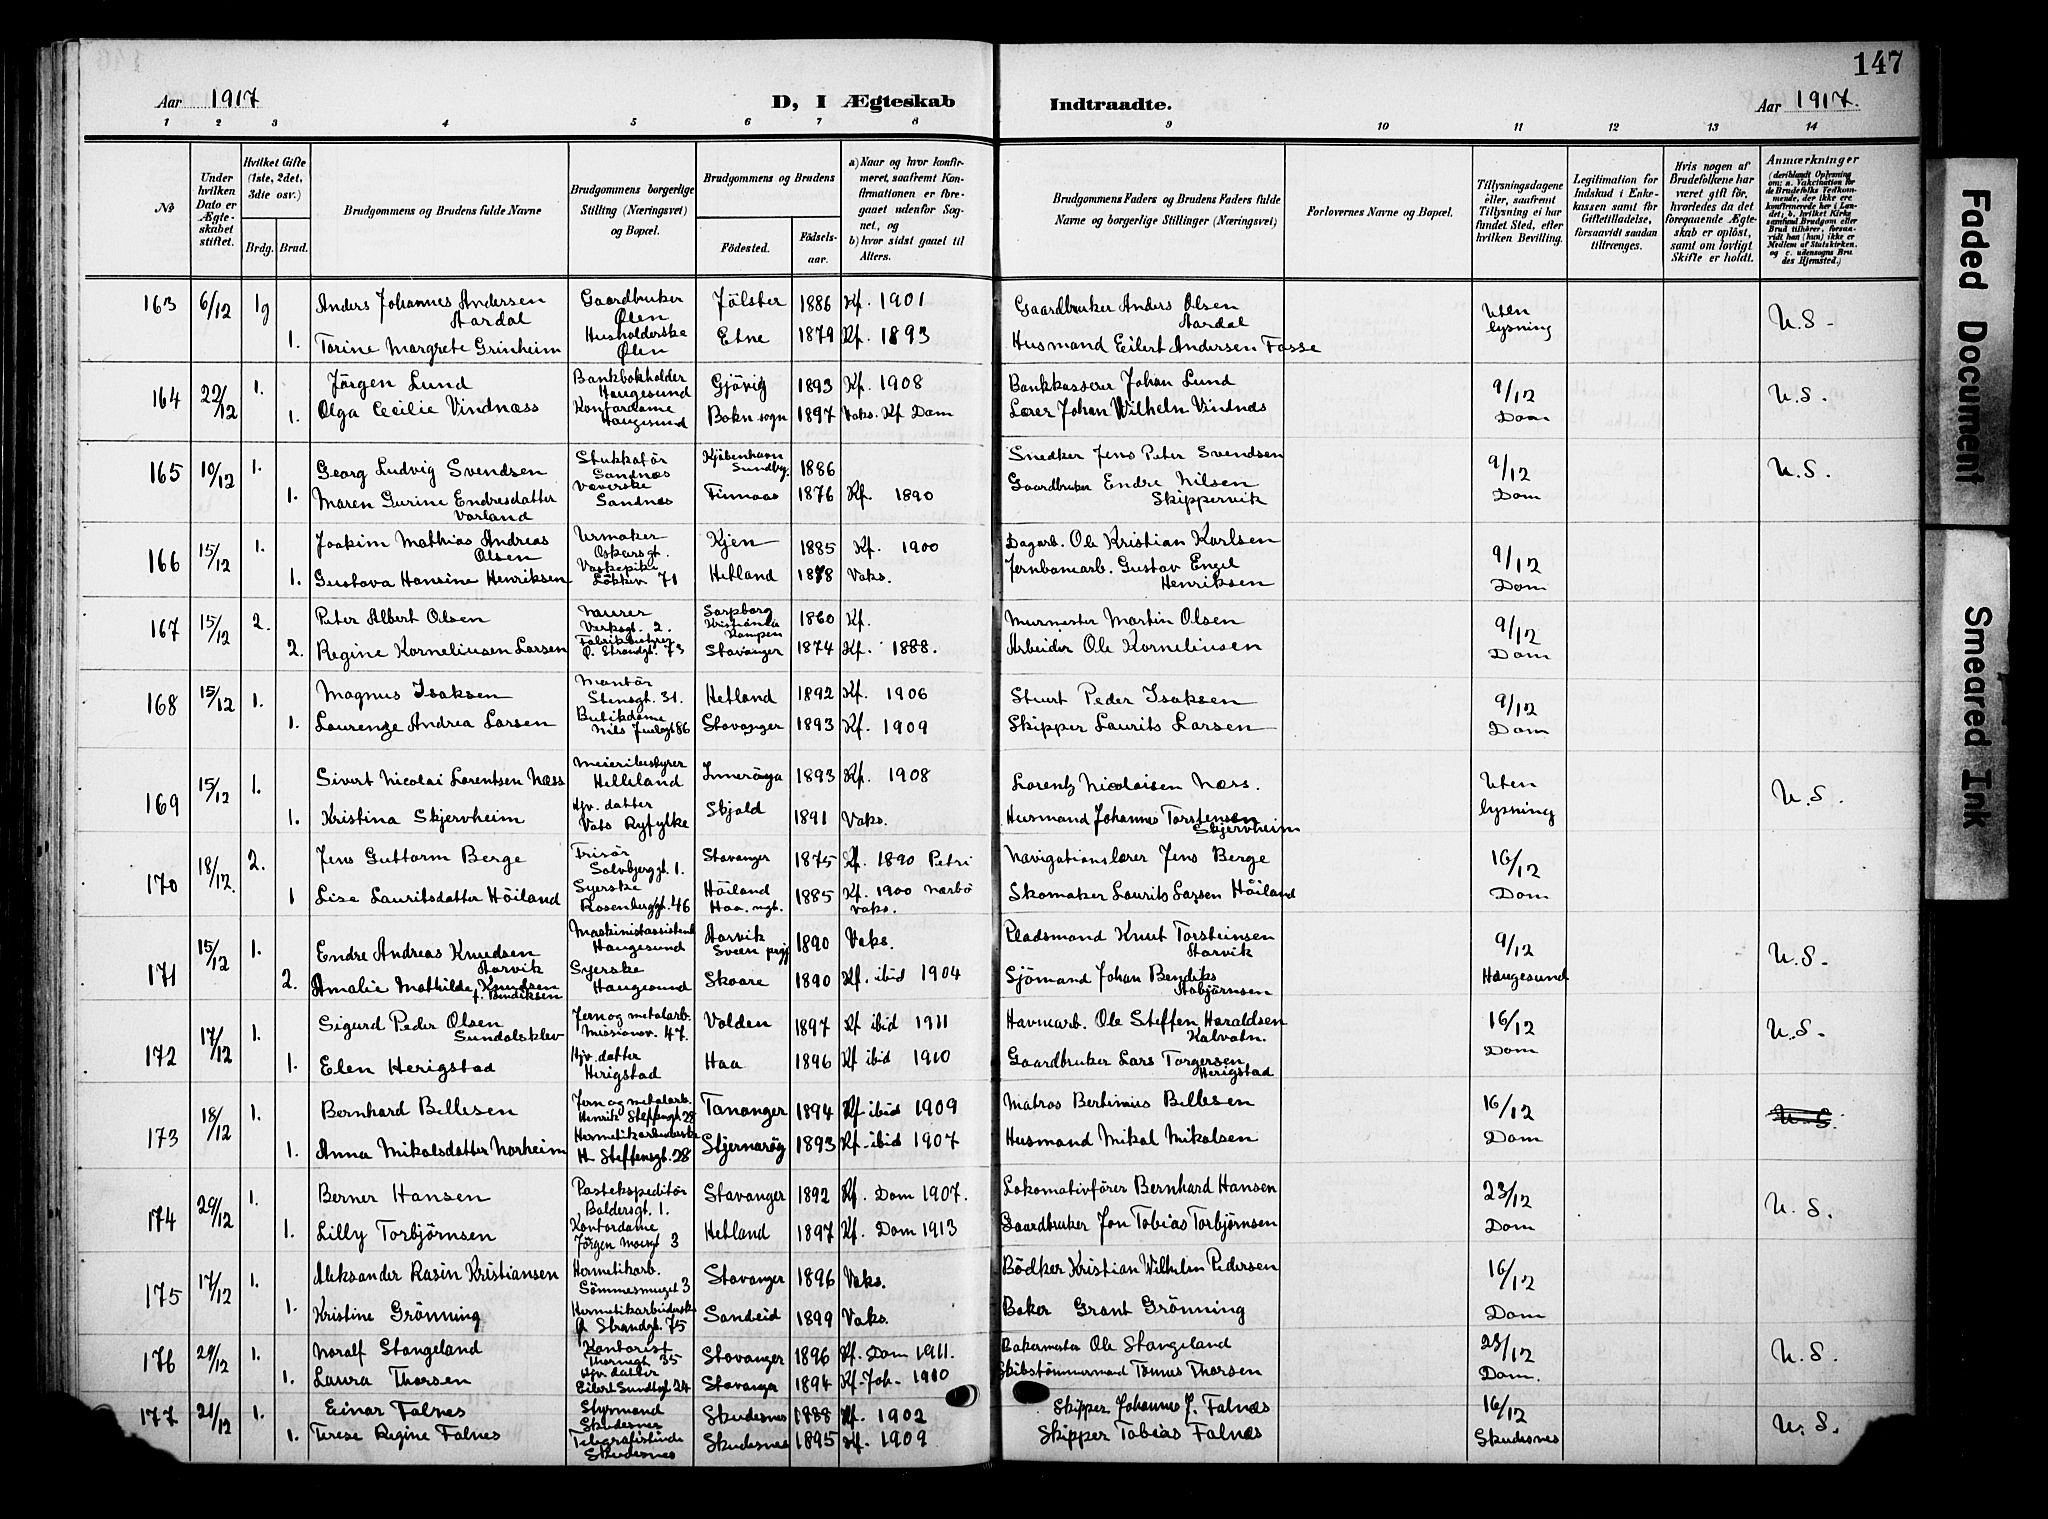 147
Aar 1917
D, I Ægteskab
Indtraadte.
Aar 1917.
1 2 3 4 5 6 7 8 9 10 11 12 13 14
№
Under hvilken Dato er Ægteskabet stiftet.
Hvilket Gifte (1ste, 2det, 3die osv.)
Brdg. Brud.
Brudgommens og Brudens fulde Navne
Brudgommens borgerlige Stilling (Næringsvei) og Bopæl.
Brudgommens og Brudens
Fødested.
Fødselsaar.
a) Naar og hvor konfirmeret, saafremt Konfirmationen er foregaaet udenfor Sognet, og
b) hvor sidst gaaet til Alters.
Brudgommens Faders og Brudens Faders fulde Navne og borgerlige Stillinger (Næringsvei)
Forlovernes Navne og Bopæl.
Tillysningsdagene eller, saafremt Tillysning ei har fundet Sted, efter hvilken Bevilling.
Legitimation for Indskud i Enkekassen samt for Giftetilladelse, forsaavidt saadan tiltrænges.
Hvis nogen af Brudefolkene har været gift før, hvorledes da det foregaaende Ægteskab er opløst, samt om lovligt Skifte er holdt.
Anmærkninger (deriblandt Oplysning om: a. Vakcination for de Brudefolks Vedkommende, der ikke ere konfirmerede her i Landet; b. hvilket Kirkesamfund Brudgom eller Brud tilhører, forsaavidt han (hun) ikke er Medlem af Statskirken, og c. udensogns Brudes Hjemsted.)
163 6/12 1g Anders Johannes Andersen Aardal Gaardbruker Ølen Jölster 1886 Kf. 1901 Gaardbruker Anders Olsen Aardal Uten lysning U.S.
1. Torine Margrete Grinheim Husholderske Ølen Etne 1879 Kf. 1893 Husmand Eilert Andersen Fosse
164 22/12 1. Jörgen Lund Bankbokholder Haugesund Gjövig 1893 Kf. 1908 Bankkasserer Johan Lund 9/12 Dom U.S.
1. Olga Cecilie Vindnæss Kontordame Haugesund Bokn sogn 1897 Vaks. Kf Dom Lærer Johan Wilhelm Vindnæs
165 10/12 1. Georg Ludvig Svendsen Stukkatör Sandnæs Kjöbenhavn Sundby. 1886 Snedker Jens Peter Svendsen 9/12 Dom U.S.
1. Maren Gurine Endresdatter Vorland Væverske Sandnæs Finnaas 1876 Kf. 1890 Gaardbruker Endre Nilsen Skippervik
166 15/12 1. Joakim Mathias Andreas Olsen Urmaker Oskarsgt. Kjen 1885 Kf. 1900 Dagarb. Ole Kristian Karlsen 9/12 Dom
1. Gustava Hansine Henriksen Vaskepike Lökkev 71 Hetland 1878 Vaks. Jernbanearb. Gustav Engel Henriksen
167 15/12 2. Peter Albert Olsen Murer Verksgt. 2. Sarpborg Kristiania Kampen 1860 Kf. Murmester Martin Olsen 9/12 Dom
2. Regine Korneliusen Larsen Ø. Strandgt. 73 Stavanger 1874 Kf. 1888. Arbeider Ole Korneliusen
168 15/12 1. Magnus Isaksen Montör Stensgt. 31. Hetland 1892 Kf. 1906 Stuert Peder Isaksen 9/12 Dom
1. Laurenze Andrea Larsen Butikdame Nils Juelsgt 86 Stavanger 1893 Kf. 1909 Skipper Laurits Larsen
169 15/12 1. Sivert Nicolai Lorentsen Næss Meieribestyrer Helleland Inneröya 1893 Kf. 1908 Lorentz Nicolaisen Næss. Uten lysning U.S.
1. Kristina Skjervheim Hjv. datter Vats Ryfylke Skjold 1891 Vaks. Husmand Johannes Torstensen Skjervheim
170 18/12. 2. Jens Guttorm Berge Frisör Solvbjerggt. 1. Stavanger 1875 Kf. 1890 Petri Navigationslærer Jens Berge 16/12 Dom
1 Lise Lauritsdatter Höiland Syerske Rosenberggt. 46 Höiland Haa. 1885 Kf. 1900 Narbö Vaks. Skomaker Laurits Larsen Höiland
171 15/12 1. Endre Andreas Knudsen Aarvik Maskinistassistent Haugesund Aarvik Sveen prgj 1890 Vaks. Pladsmand Knut Torsteinsen Aarvik 9/12 Haugesund U.S.
2. Amalie Mathilde Knudsen f. Bendiksen Syerske Haugesund Skaare 1890 Kf. ibid 1904 Sjömand Johan Bendiks Asbjörnsen
172 17/12 1. Sigurd Peder Olsen Sundalsklev Jern og metalarb. Missionsv. 47. Volden 1897 Kf ibid 1911 Havnearb. Ole Steffen Haraldsen Kalvatn. 16/12 Dom U.S.
1. Elen Herigstad Hjv. datter Herigstad Haa 1896 Kf ibid 1910 Gaardbruker Lars Torgersen Herigstad
173 18/12 1. Bernhard Bellesen Jern og metalarb. Henrik Steffensgt 28 Tananger 1894 Kf ibid 1909 Matros Bertinius Bellesen 16/12 Dom U.S.
1. Anna Mikalsdatter Norheim Hermetikarbeiderske H. Steffensgt. 28 Stjernaröy 1893 Kf ibid 1907 Husmand Mikal Mikalsen
174 29/12 1. Berner Hansen Postekspeditör Baldersgt. 1. Stavanger 1892 Kf. Dom 1907. Lokomotivförer Bernhard Hansen 23/12 Dom U.S.
1. Lilly Torbjörnsen Kontordame Jörgen Moesgt 3 Hetland 1897 Kf. Dom 1913 Gaardbruker Jon Tobias Torbjörnsen
175 17/12 1. Aleksander Rasin Kristiansen Hermetikarb. Sömmesmuget 3 Stavanger 1896 Vaks. Bödker Kristian Wilhelm Pedersen 16/12 Dom
1. Kristine Grönning Hermetikarbeiderske Ø Strandgt. 75 Sandeid 1899 Vaks. Baker Grant Grönning
176 29/12 1. Noralf Stangeland Kontorist Thornegt 35 Stavanger 1896 Kf. Dom 1911. Bakermester Ole Stangeland 23/12 Dom. U.S.
1. Laura Thorsen Hjv. datter Eilert Sundtsgt 24 Stavanger 1894 Kf. Joh. 1910 Skibstömmermand Tönnes Thorsen
177 21/12 1. Einar Falnes Styrmand Skudesnes Skudesnes 1888 Kf. 1902 Skipper Johannes J. Falnæs 16/12 Skudesnes U.S.
1. Terese Regine Falnes Telegrafistinde Skudesnes Skudesnes 1895 Kf. 1909 Skipper Tobias Falnæs
Faded Document
Smeared Ink